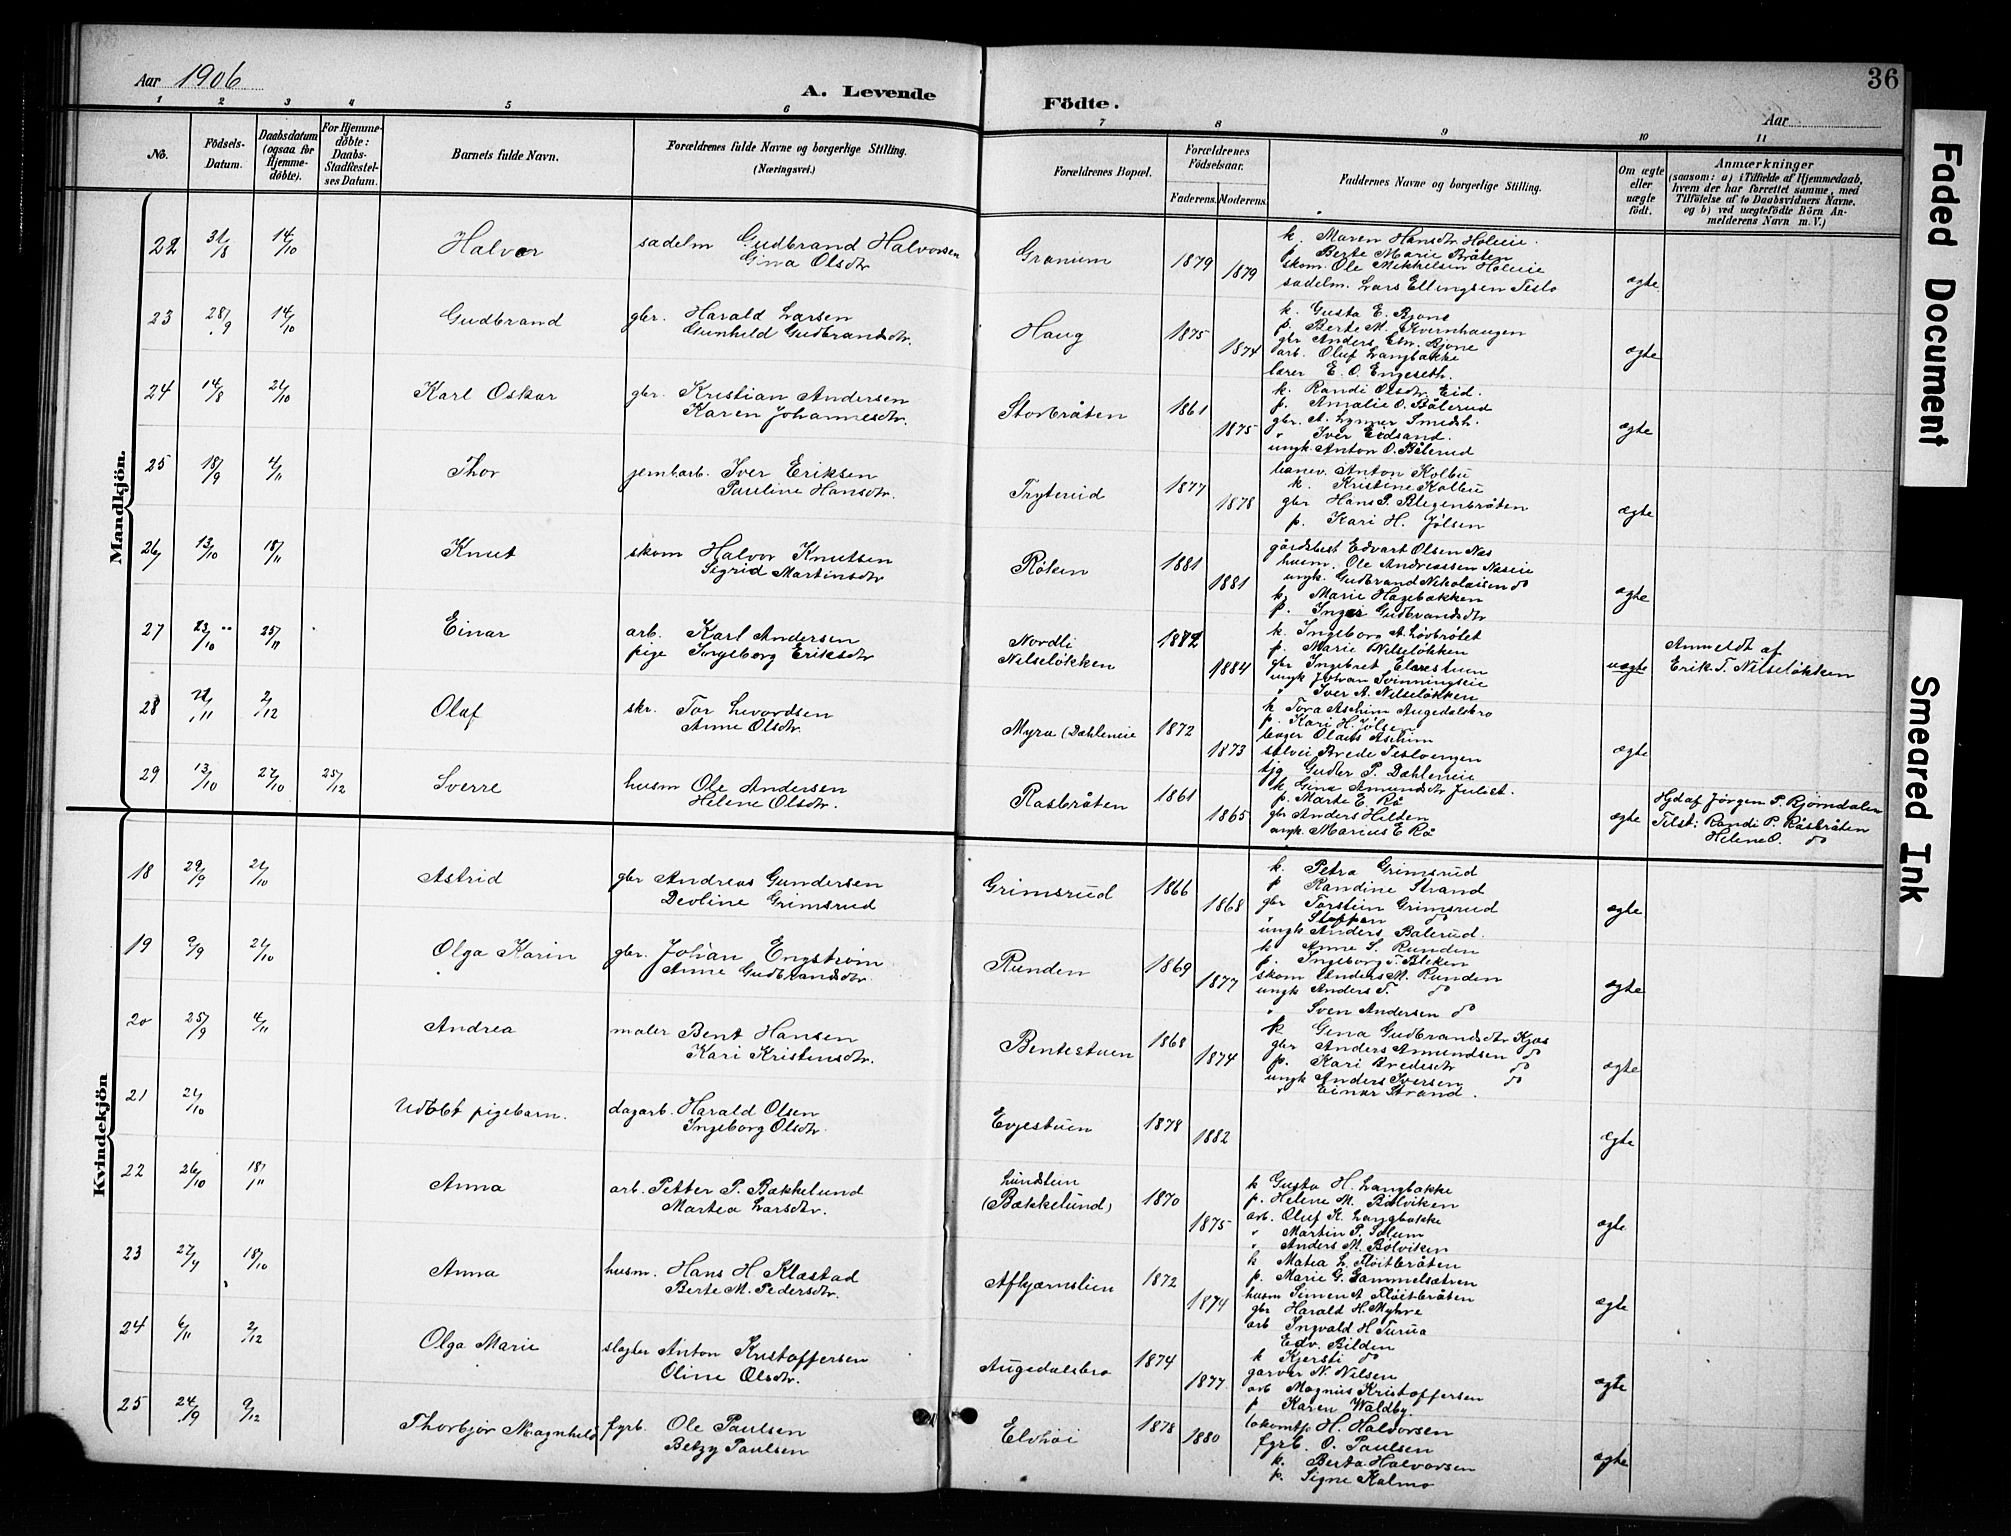 Aar 1906
A. Levende Födte.
36
Aar
1 2 3 4 5 6 7 8 9 10 11
No.
Födsels-Datum.
Daabsdatum (ogsaa for Hjemme-döbte).
For Hjemme-döbte: Daabs-Stadfæstel-ses Datum.
Barnets fulde Navn.
Forældrenes fulde Navne og borgerlige Stilling.
(Næringsvei.)
Forældrenes Bopæl.
Forældrenes Födselsaar.
Faderens. Moderens.
Faddernes Navne og borgerlige Stilling.
Om ægte eller uægte födt.
Anmærkninger
(saasom: a) i Tilfælde af Hjemmedaab,
hvem der har forrettet samme, med
Tilföielse af to Daabsvidners Navne.
og b) ved uægtefödte Börn An-
melderens Navn m. V.)
Mandkjön.
22 31/8 14/10 Halvor sadelm Gudbrand Halvorsen
Gina Olsdtr
Granum 1879 1879
k. Maren Hansdtr Holeie.
p. Berte Marie Bråten
skom. Ole Mikkelsen Holeie
sadelm. Lars Ellingsen Teslo
ægte.
23 28/9 14/10 Gudbrand gbr. Harald Larsen
Gunhild Gudbrandsdtr.
Haug 1875 1874
k. Gusta E. Bjone
p. Berte M. Kvernhaugen
gbr Anders Bjone
arb. Oluf Langbakke
lærer E. O. Engeseth.
ægte
24 14/8 21/10 Karl Oskar gbr. Kristian Andersen
Karen Johannesdtr.
Storbråten 1861 1875
k. Randi Olsdtr Eid.
p. Amalie O. Bålerud
gbr. A. Lymer
" Iver Eidsand.
ungk. Anton O. Bålerud
ægte
25 18/9 4/11 Thor jernbarb. Iver Eriksen
Pauline Hansdtr.
Tryterud 1877 1878
banev. Anton Kolbu
k. Kristine Kolbu
gbr Hans P. Blegenbråten
p. Kari H. Jølsen
ægte
26 13/10 18/11 Knut skom Halvor Knutsen
Sigrid Martinsdtr
Røken 1881 1881
gårdsbest Edvart Olsen Næs
husm. Ole Andreassen Næseie
ungk. Gudbrand Nikolaisen do
k. Marie Hagebakken
p. Inger Gudbrandsdtr
ægte
27 23/10 25/11 Einar arb. Karl Andersen
pige Ingeborg Eriksdtr
Nordli
Nilseløkken
1882 1884
k. Ingeborg A. Løvbrøtet
p. Marie Nilseløkken
gbr Ingebret Elvestuen
ungk Johan Svinningseie
" Iver A. Nilseløkken
uægte
Anmeldt af
Erik T. Nilseløkken
28 /11 2/12 Olaf skr. Tor Levordsen
Anne Olsdtr.
Myra (Dæhleneie 1872 1873
k Tora Aschim Augedalsbro
p. Kari H. Jølse
bager Olaus Aschim
Brede Teslvengen
tjg Gudbr P. Dæhleneie
ægte
29 13/10 27/10 25/12 Sverre husm Ole Andersen
Helene Olsdtr.
Rasbråten 1861 1865
k Gina Amundsdtr
p. Marte E. Rø
gbr Anders Hilsen
ungk. Marius E Rø
ægte
Hjd af Jørgen P. Bjørndalen
Tilst: Randi P. Råsbråten
Helene O. do
Kvindekjön
18 29/9 21/10 Astrid gbr Andreas Gundersen
Devline Grimsrud
Grimsrud 1866 1868
k. Petra Grimsrud
p Randine Strand
gbr Torstein Grimsrud
" Steffen do
ungk Anders Bålerud.
ægte
19 9/9 21/10 Olga Karin gbr. Johan Engstrøm
Anne Gudbrandsdtr.
Runden 1869 1877
k Anne S. Runden
p. Ingeborg T. Bleken
skom Anders M. Runden
ungk Anders T. do
" Sven Andersen do
ægte
20 25/9 4/11 Andrea maler Bent Hansen
Kari Kristensdtr.
Bentestuen 1868 1874
k. Gina Gudbrandsdtr Kjøs
gbr Anders Amundsen do
p. Kari Bredesdtr do
ungk Anders Iversen do
" Einar Strand.
ægte
21 21/10 Udøbt pigebarn. dagarb. Harald Olsen
Ingeborg Olsdtr.
Evjestuen 1878 1882
ægte
22 26/10 18/11 Anna arb. Petter P. Bækkelund
Martea Larsdtr.
Lundstein
(Bækkelund)
1870 1875
k Gusta H. Langbakke
p. Helene M. Bølviken
arb. Oluf K. Langbakke
" Martin P. Solum
" Anders M. Bølviken
ægte
23 27/9 18/10 Anna husm. Hans H. Klæstad
Berte M. Pedersdtr.
Afkjærnslien 1872 1874
k Matea L. Fløitbråten
p. Marie G. Gammelsætren
husm Simen A Fløitbråten
gbr Harald H. Myhre
arb Ingvald H Turua
ægte
24 6/11 2/12 Olga Marie slagter Anton Kristoffersen
Oline Olsdtr.
Augedalsbro 1874 1877
Edv. Bilden
k Kjersti do
garver N. Nilsen
arb Magnus Kristoffersen
p. Karen Waldby
ægte
25 24/9 9/12 Thorbjør Magnhild fyrb. Ole Paulsen
Betzy Paulsen
Elvhøi 1878 1880
lokomtf H. Halvorsen
fyrb. O. Paulsen
k. Berta Halvorsen
p. Signe Kalmo
ægte
Faded Document
Smeared Ink